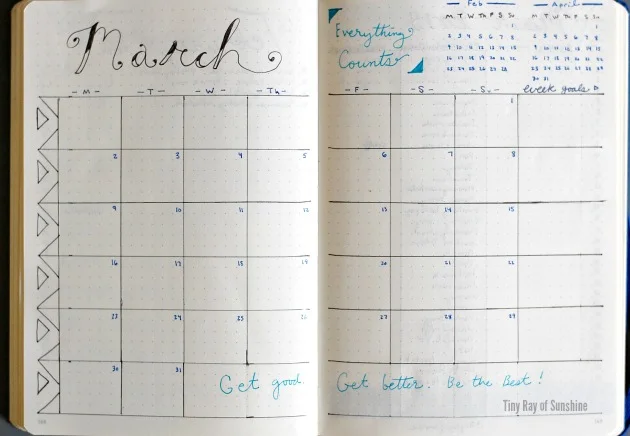 March
Everything
Counts
Feb
M T W Th F S Su
1
2 3 4 5 6 7 8
9 10 11 12 13 14 15
16 17 18 19 20 21 22
23 24 25 26 27 28
April
M T W Th F S Su
1
2 3 4 5 6 7 8
9 10 11 12 13 14 15
16 17 18 19 20 21 22
23 24 25 26 27 28 29
30 31
- M - - T - - W - - Th - - F - - S - - Su - week goals
1
2 3 4 5 6 7 8
9 10 11 12 13 14 15
16 17 18 19 20 21 22
23 24 25 26 27 28 29
30 31
Get good. Get better. Be the Best!
Tiny Ray of Sunshine